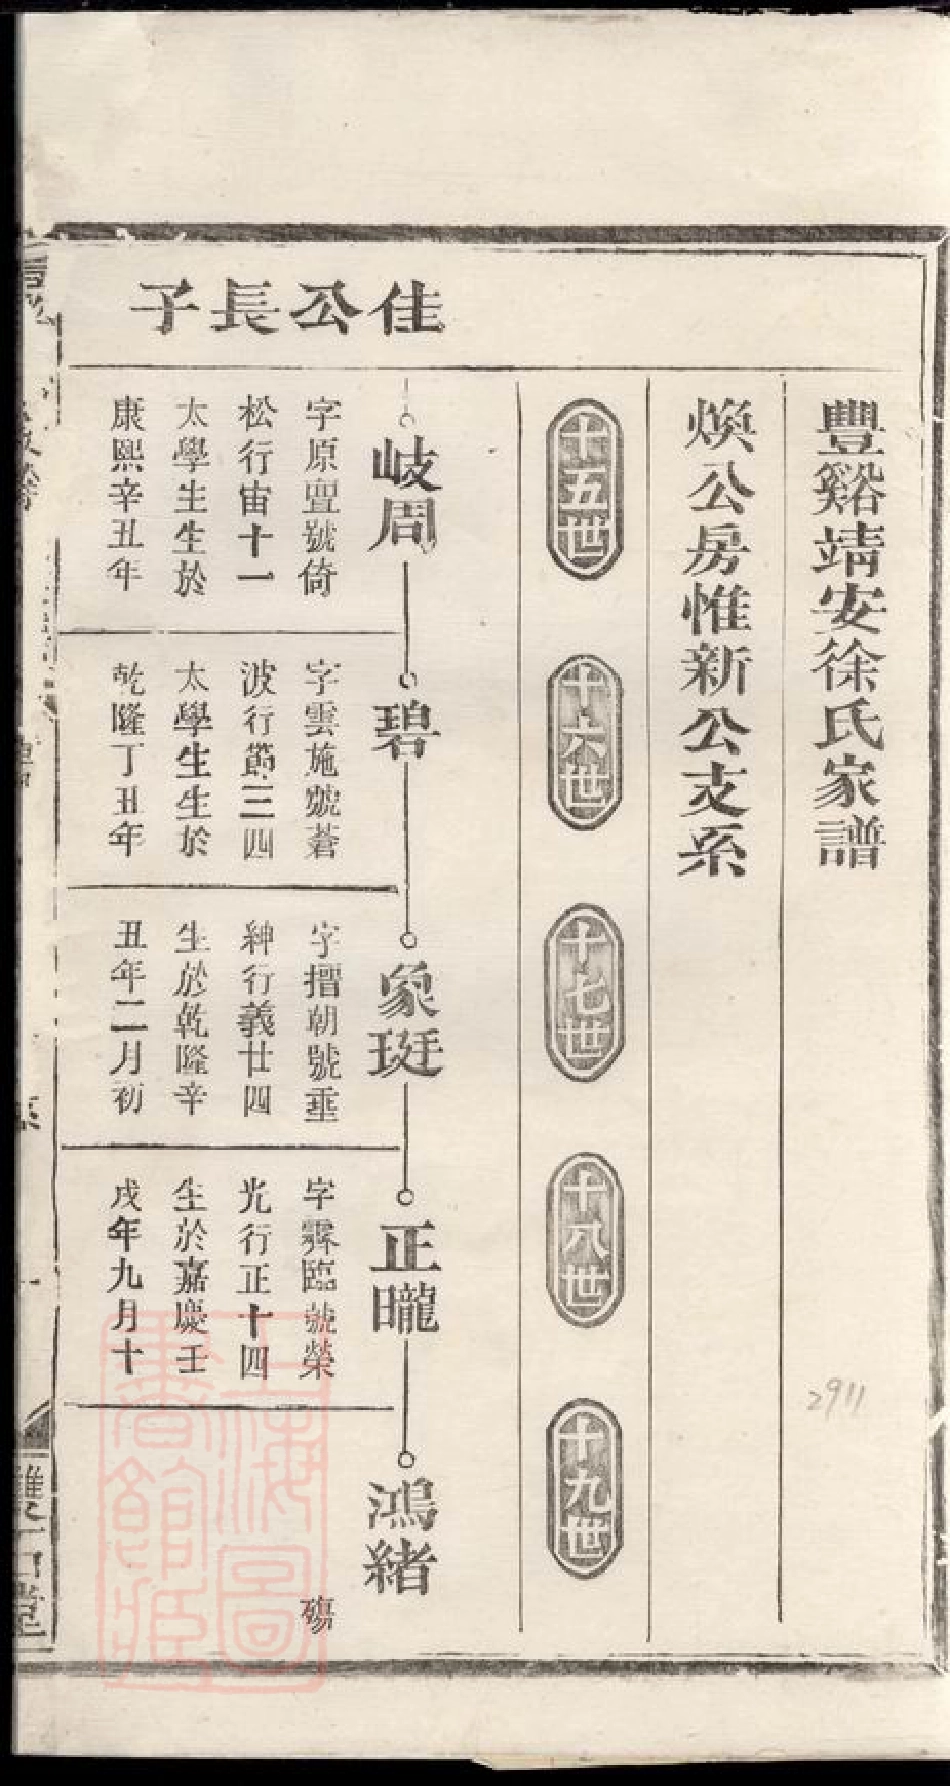 豐谿靖安徐氏家譜
煥公房惟新公支系
十五世
十六世
十七世
十八世
十九世
佳公長子
岐周
字原亶號倚
松行宙十一
太學生生於
康熙辛丑年
碧
字雲施號蒼
波行節三四
太學生生於
乾隆丁丑年
象珽
字搢朝號垂
紳行義廿四
生於乾隆辛
丑年二月初
正曨
字驛臨號榮
光行正十四
生於嘉慶壬
戌年九月十
鴻緒
殤
2911
上海圖
書館藏